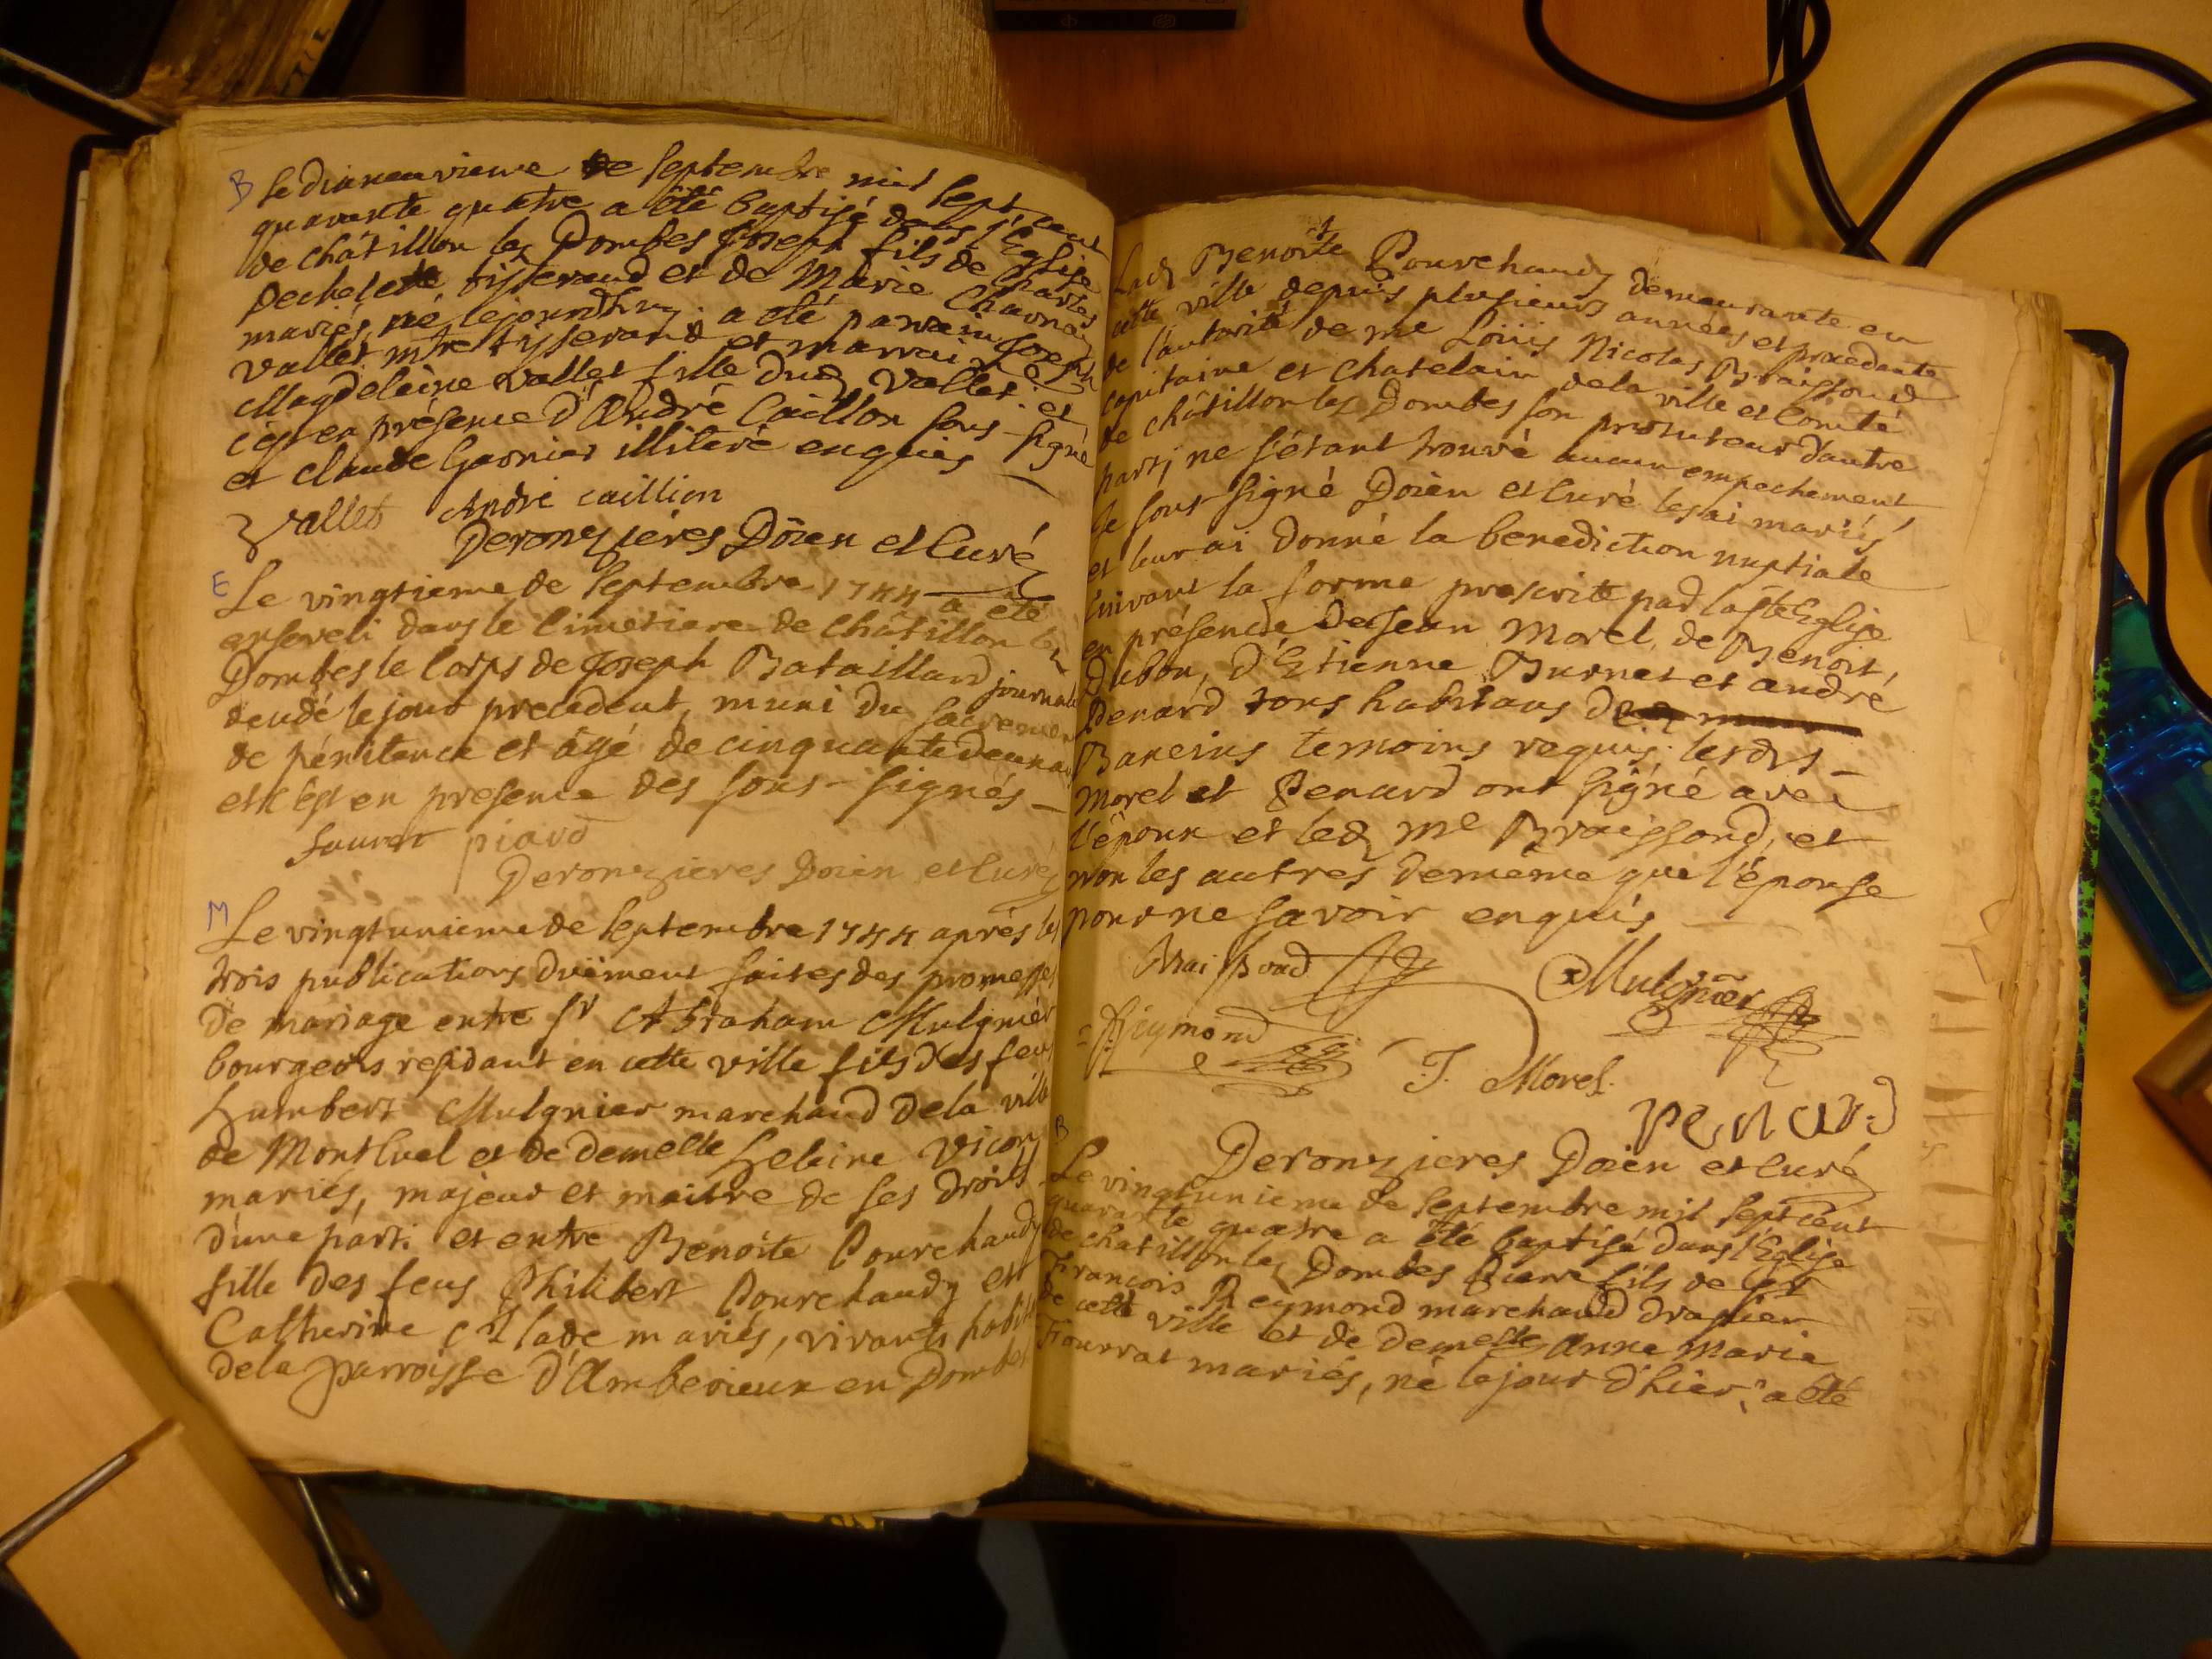 B Le dixneuvieme de Septembre mil sept cent
quarente quatre a été baptisé dans l'Eglise
de châtillon les Dombes Joseph fils de Charles
Pechelette tisserand et de Marie Charnay
mariés, né lejourdhuy. a été parrain Joseph
Vallet mtre tisserand et marraine
Magdeleine Vallet fille dud Vallet. et
c'est en présence d'André Caillon sous-signé
et claude Garnier illiteré enquis
Vallet André caillion
Deronzieres Doien et Curé
E Le vingtieme de septembre 1744 a été
enseveli dans le cimetiere de châtillon les
Dombes le corps de Joseph Bataillard journalier
decedé lejour precedent, muni du sacrement
de pénitence et âgé de cinquante deux ans
et c'est en presence des sous-signés
fauret piard
Deronzieres Doien et Curé
M Le vingtunieme de septembre 1744 après les
trois publications duëment faites des promesses
de mariage entre Sr Abraham Mulgnier
bourgeois residant en cette ville fils des feus
humbert Mulgnier marchand dela ville
de Montluel et de demelle heleine Vicon
mariés, majeur et maitre de ses droits
d'une part. et entre Benoite Pourchaudy
fille des feus Philibert Pourchaudy et
Catherine mariés, vivants habitts
dela parroisse d'Amberieux en Dombes
Lad Benoite Pourchaudy demeurante en
cette ville depuis plusieurs années et procedante
de l'autorité de me Loüis Nicolas Braissoud
capitaine et chatelain dela ville et Comté
de châtillon les Dombes son protuteur d'autre
part; ne s'étant trouvé aucun empechement
Je sous-signé Doien et Curé les ai mariés
et leur ai donné la benediction nuptiale
suivant la forme prescrite par la ste Eglise
en présence de Jean Morel, de Benoit
Dubon, d'Etienne Burnet et andré
Penard tous habitans de
Baneins temoins requis. lesdts
Morel et Penard ont signé avec
l'époux et led Me Braissoud, et
non les autres demême que l'épouse
pour ne savoir enquis
Braissoud Mulgnier
Reymond
J. Morel.
Penard
Deronzieres Doien et Curé
B Le vingtunieme de septembre mil sept cent
quarente quatre a été baptisé dans l'Eglise
de chatillon les Dombes Pierre fils de Sr
François Reymond marchand drapier
de cette ville et de demelle Anne Marie
Fourrat mariés, né le jour d'hier; a été